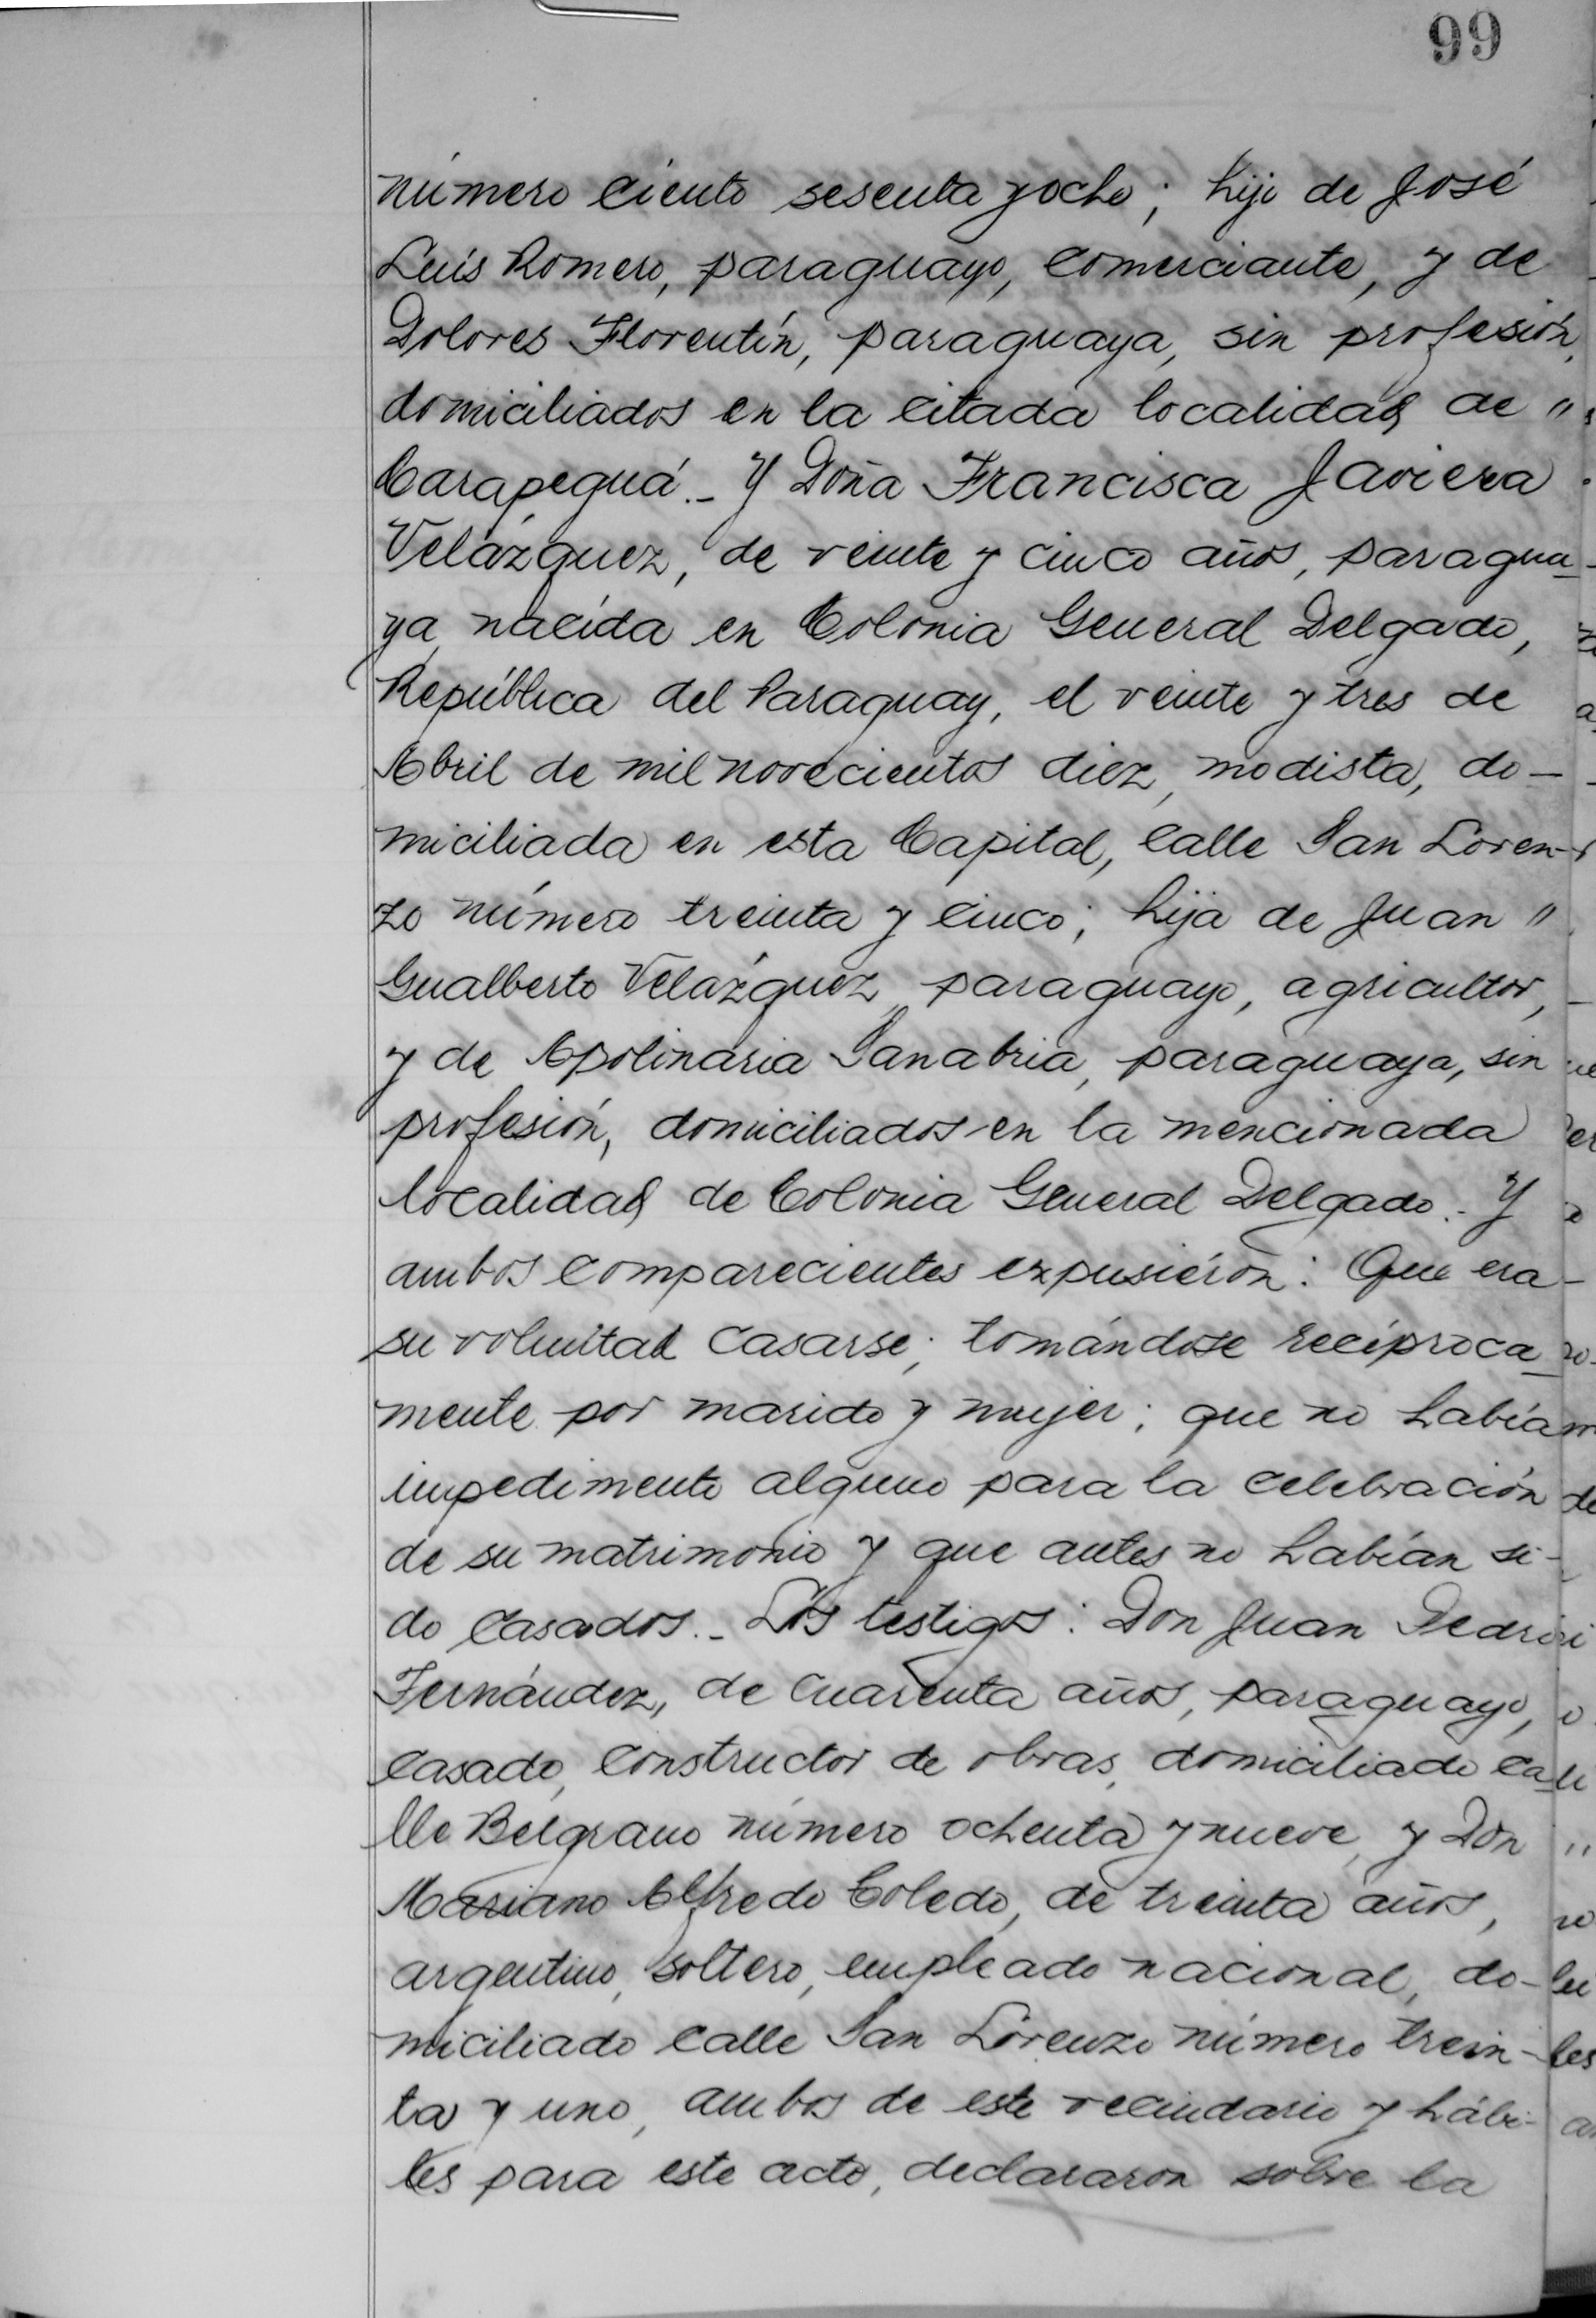 99
número ciento sesenta y ocho; hijo de José
Luís Romero, paraguayo, comerciante, y de
Dolores Florentín, paraguaya, sin profesión,
domiciliados en la citada localidad de "
Carapeguá._ Y Doña Francisca Javiera
Velázquez, de veinte y cinco años, paragua-
ya, nacida en Colonia General Delgado,
República del Paraguay, el veinte y tres de
Abril de mil novecientos diez, modista, do-
miciliada en esta Capital, calle San Loren-
zo número treinta y cinco; hija de Juan "
Gualberto Velázquez, paraguayo, agricultor,
y de Apolinaria Sanabria, paraguaya, sin
profesión, domiciliados en la mencionada
localidad de Colonia General Delgado.- Y
ambos comparecientes expusieron: Que era
su voluntad casarse, tomándose recíproca-
mente por marido y mujer; que no había
impedimento alguno para la celebración
de su matrimonio y que antes no habían si-
do casados._ Los testigos: Don Juan Pedro
Fernández, de cuarenta años, paraguayo,
casado, constructor de obras, domiciliado ca-
lle Belgrano número ochenta y nueve, y Don
Mariano Alfredo Toledo, de treinta años,
argentino, soltero, empleado nacional, do-
miciliado calle San Lorenzo número trein-
ta y uno, ambos de este vecindario y hábi-
les para este acto, declararon sobre la